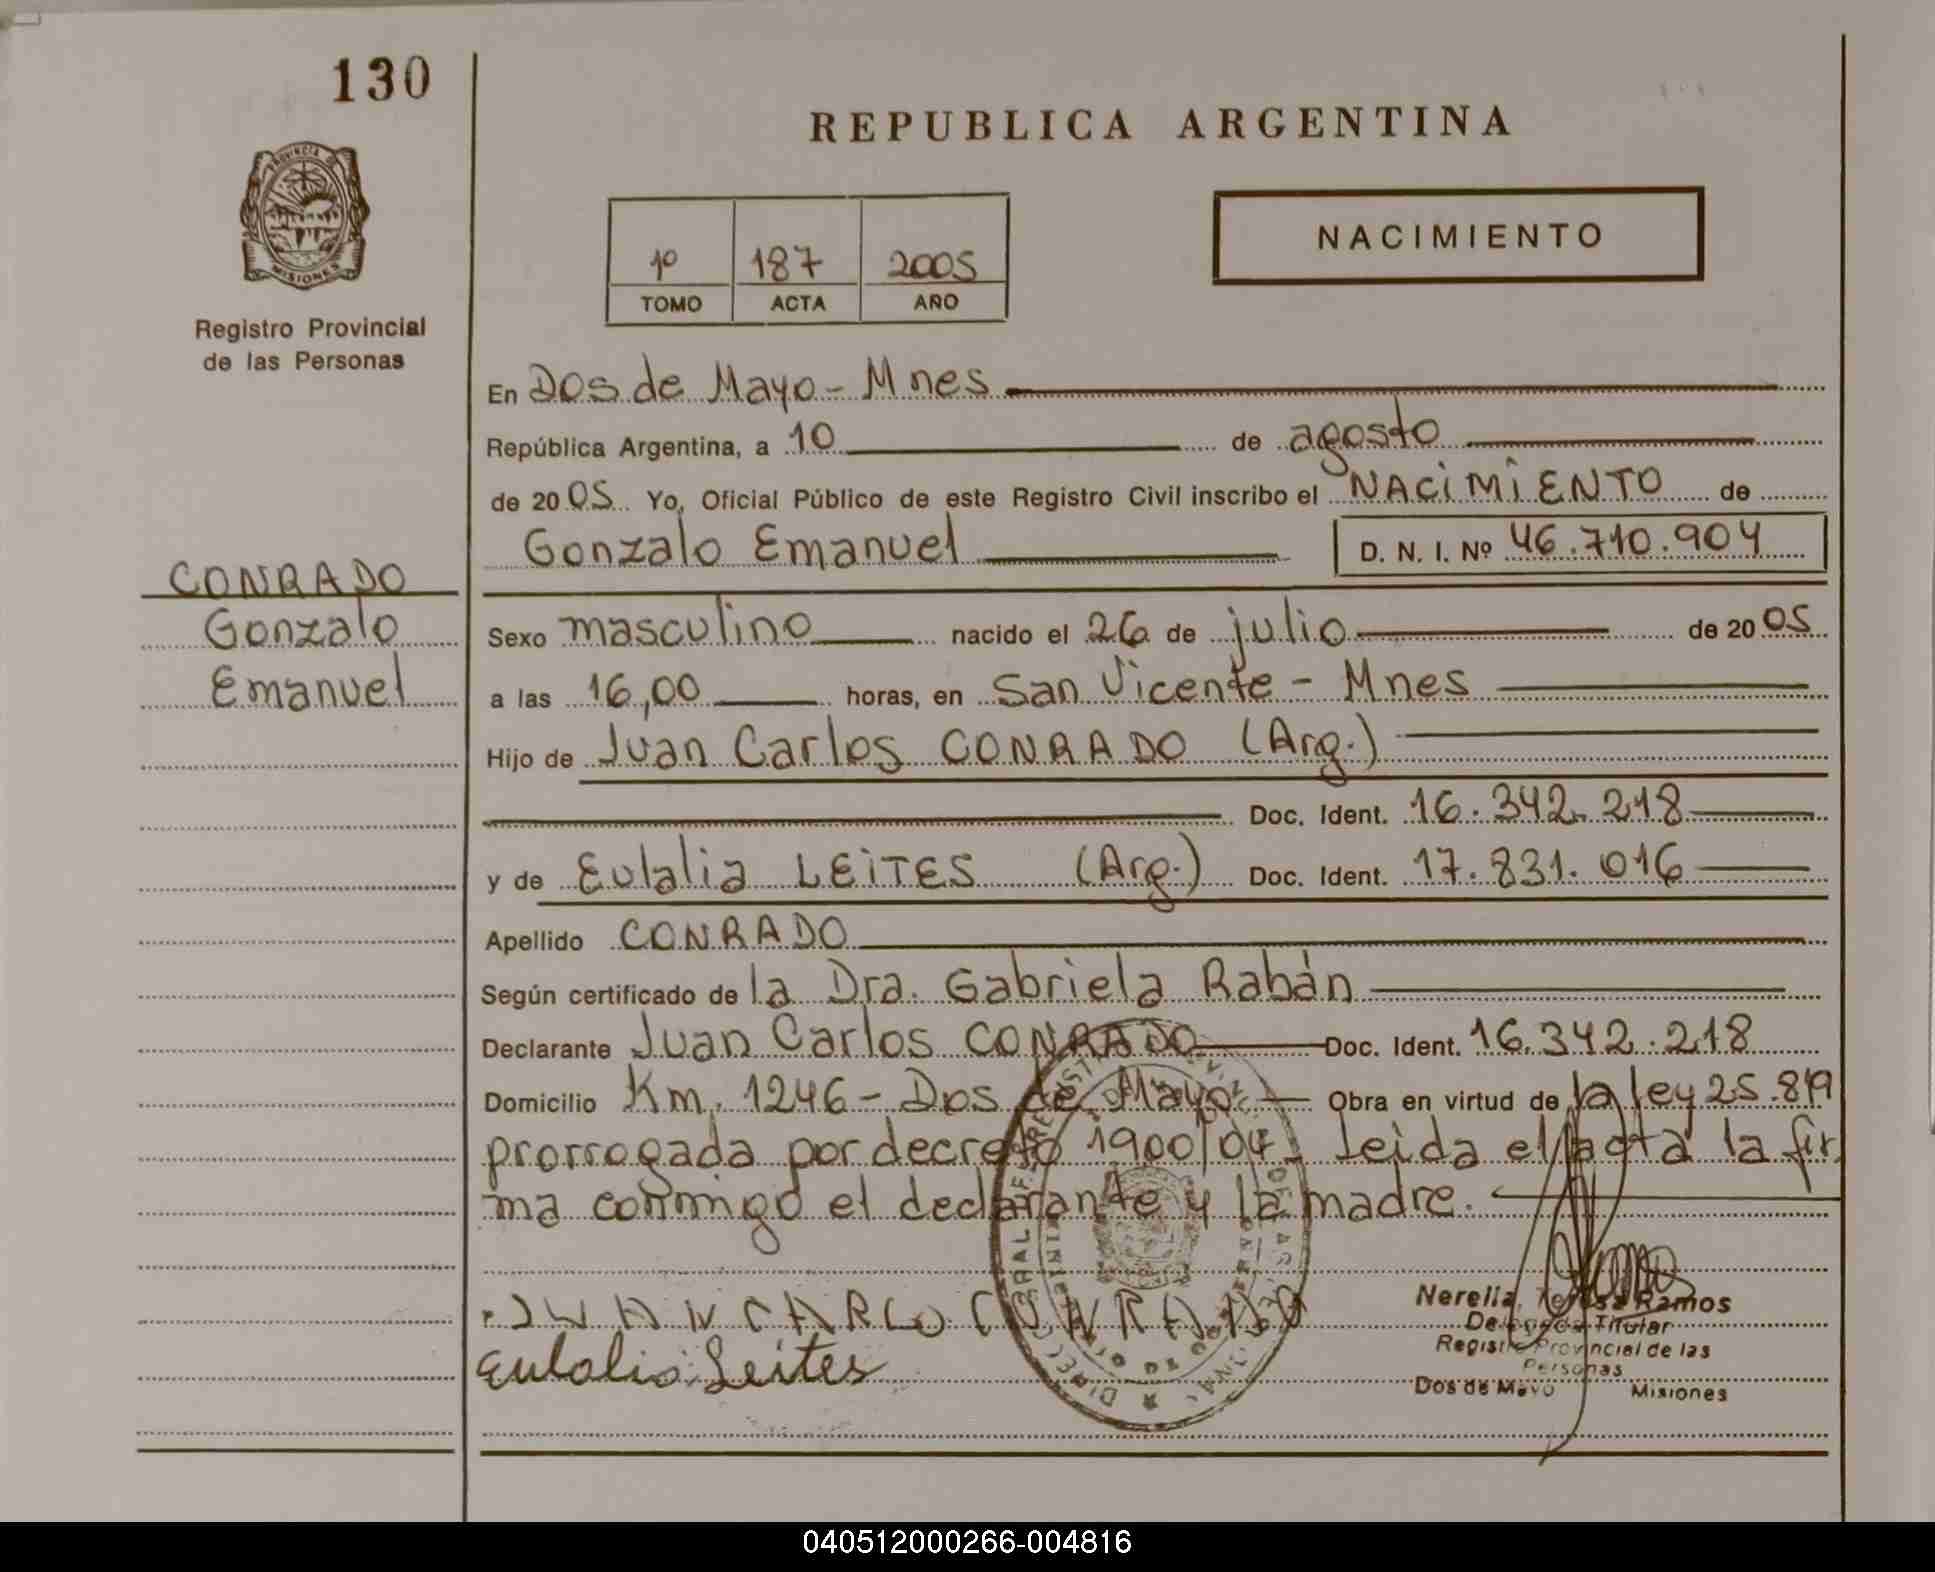 130
REPUBLICA ARGENTINA
PROVINCIA DE
MISIONES
Registro Provincial
de las Personas
1º 187 2005
TOMO ACTA AÑO
NACIMIENTO
En Dos de Mayo - Mnes
República Argentina, a 10 de agosto
de 2005 Yo, Oficial Público de este Registro Civil inscribo el NACIMIENTO de
Gonzalo Emanuel D. N. I. Nº 46.710.904
CONRADO
Gonzalo
Emanuel
Sexo masculino nacido el 26 de julio de 2005
a las 16,00 horas, en San Vicente - Mnes
Hijo de Juan Carlos CONRADO (Arg.)
Doc. Ident. 16.342.218
y de Eulalia LEITES (Arg.) Doc. Ident. 17.831.016
Apellido CONRADO
Según certificado de la Dra. Gabriela Rabán
Declarante Juan Carlos CONRADO Doc. Ident. 16.342.218
Domicilio Km. 1246 - Dos de Mayo Obra en virtud de la ley 25.819
prorrogada por decreto 1900/04. Leida el acta la fir
ma conmigo el declarante y la madre.
JUAN CARLO CONRADO
Eulalia Leites
Nerelia Teresa Ramos
Delegada Titular
Registro Provincial de las
Personas
Dos de Mayo Misiones
040512000266-004816